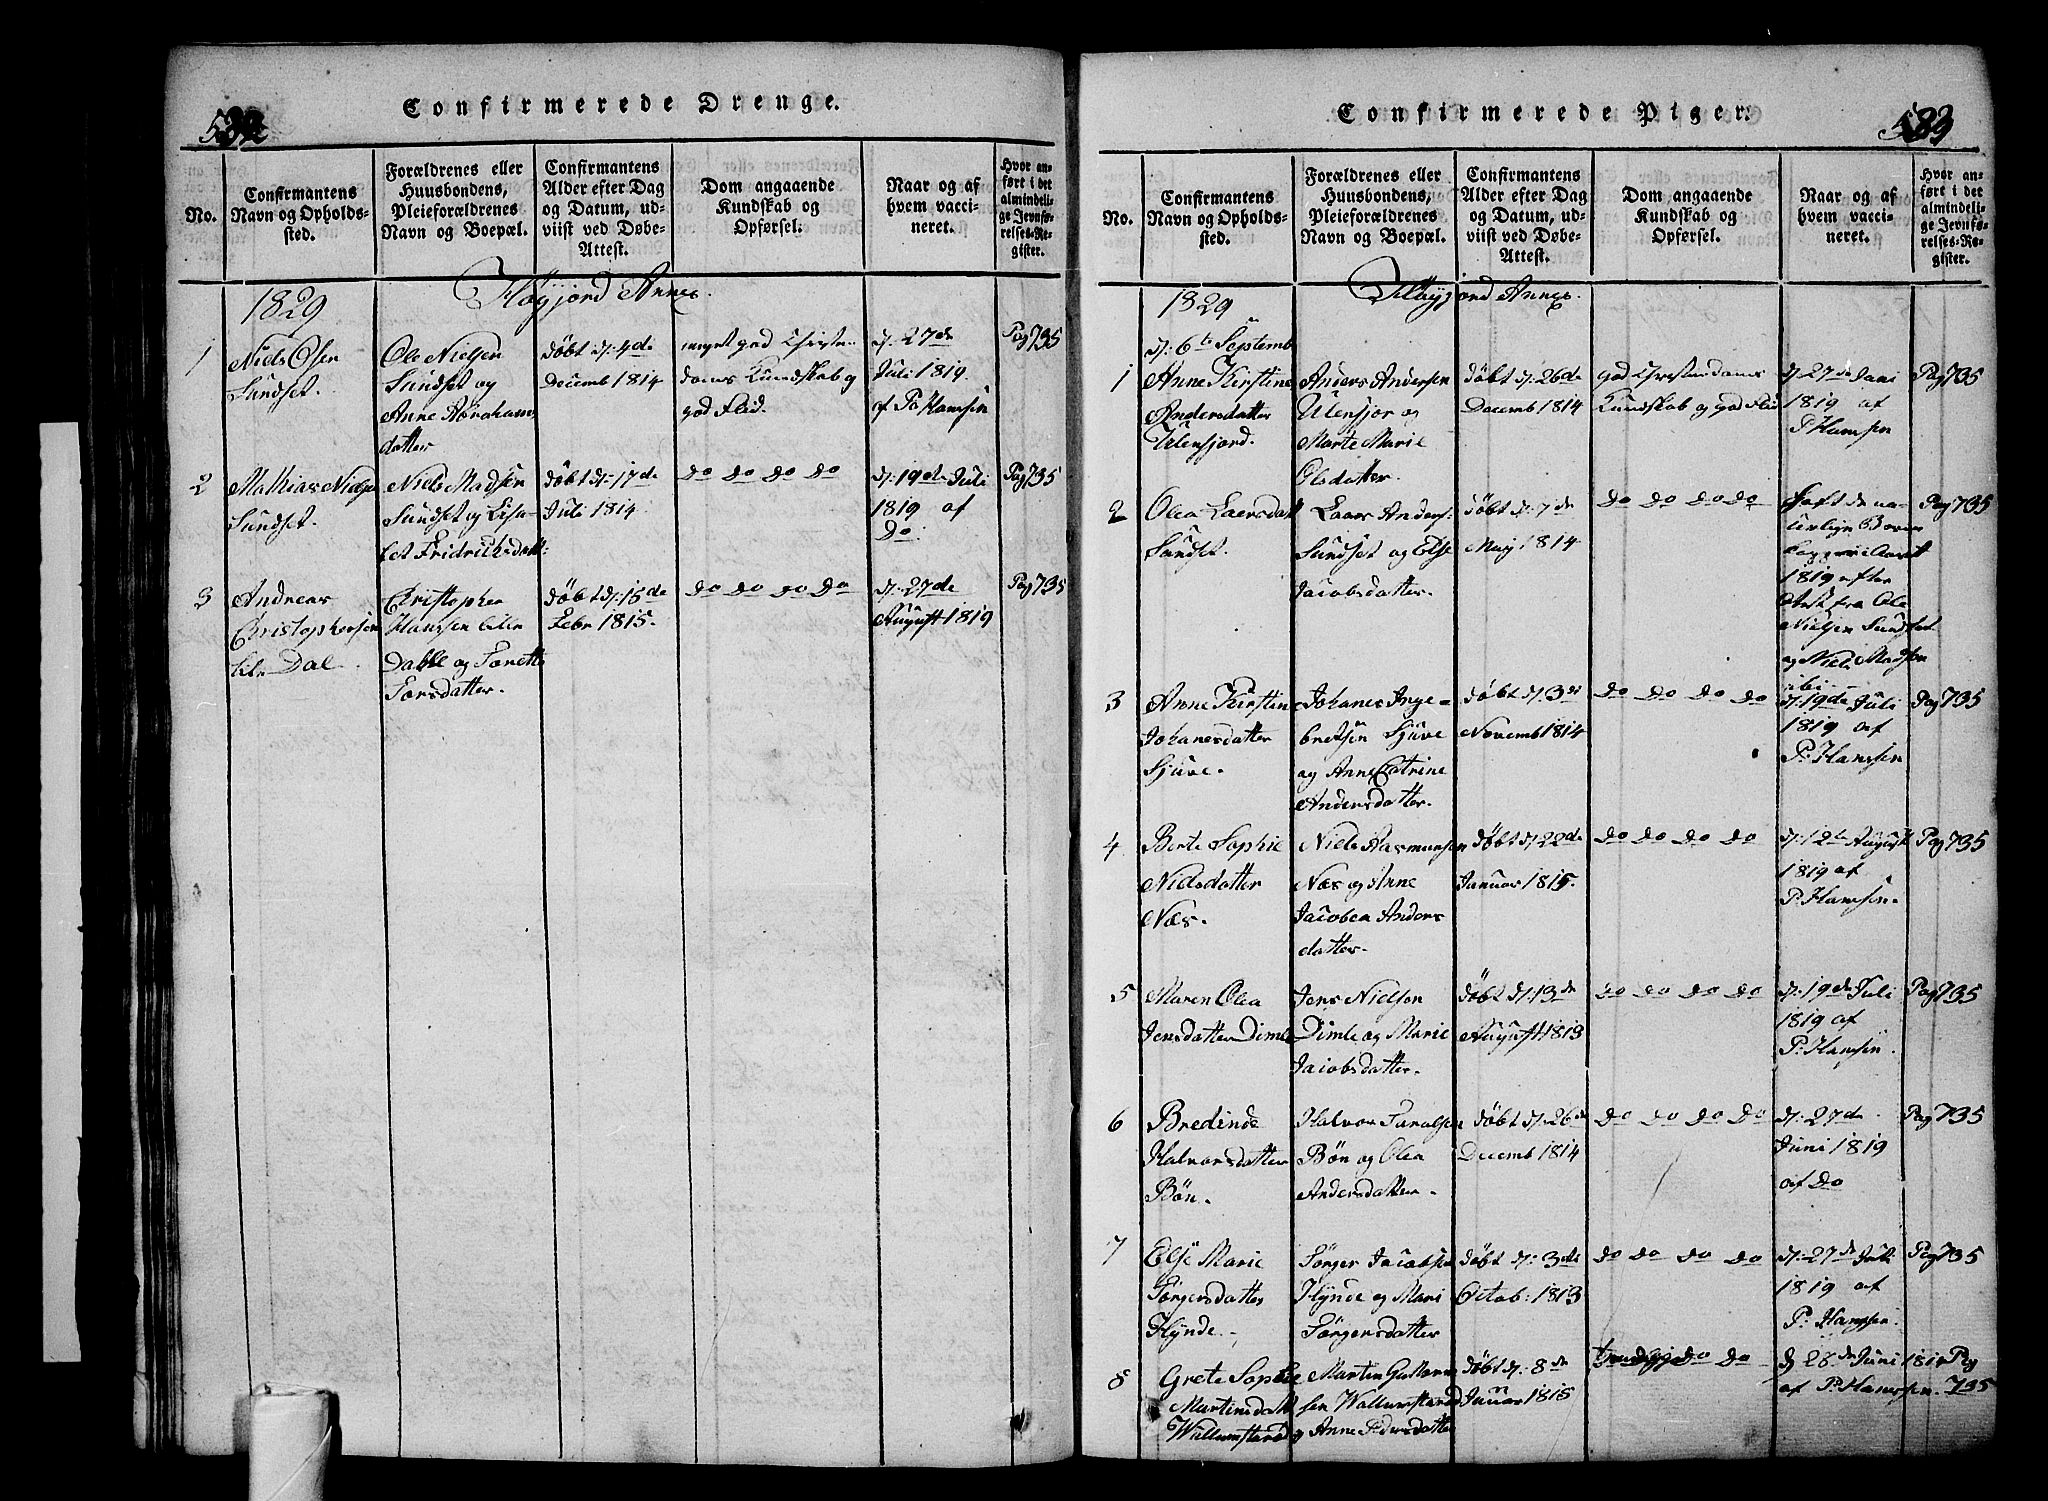 Confirmerede Drenge.
No.
Confirmantens
Navn og Opholds-
sted.
Forældrenes eller
Huusbondens,
Pleieforældrenes
Navn og Boepæl.
Confirmantens
Alder efter Dag
og Datum, ud-
viist ved Døbe-
Attest.
Dom angaaende
Kundskab og
Opførsel.
Naar og af
hvem vacci-
neret.
Hvor an-
ført i det
almindeli-
ge Jevnfø-
relses-Re-
gister.
1829
Høyjord Annex.
1
Niels Olsen
Sundset.
Ole Nielsen
Sundset og
Anne Abrahams
datter
døbt d: 4de
Decemb 1814
meget god Christen
doms Kundskab og
god Flid.
d: 27de
Juli 1819.
af P. Hansen
Pag 735
2
Mathias Nielsen
Sundset.
Niels Madsen
Sundset og Lisa-
bet Fridrichsdatt:
døbt d: 17de
Juli 1814.
do do do do
d: 19de Juli
1819 af
Do.
Pag 735
3
Andreas
Christophersen
Dal.
Christopher
Hanssen
og
Torsdatter.
døbt d: 15de
Febr 1815.
do do do do
d: 27de
August 1819
Pag 735
Confirmerede Piger.
No.
Confirmantens
Navn og Opholds-
sted.
Forældrenes eller
Huusbondens,
Pleieforældrenes
Navn og Boepæl.
Confirmantens
Alder efter Dag
og Datum, ud-
viist ved Døbe-
Attest.
Dom angaaende
Kundskab og
Opførsel.
Naar og af
hvem vacci-
neret.
Hvor an-
ført i det
almindeli-
ge Jevnfø-
relses-Re-
gister.
1829
Høyjord Annex.
d: 6te Septemb
1
Anne Kirstine
Andersdatter
Ulenfjord.
Anders Andersen
og
Marte Marie
Olsdatter.
døbt d: 26de
Decemb 1814
god Christendoms
Kundskab og god Flid
d: 27de Juni
1819 af
P Hansen
Pag 735
2
Olea Laersdatt
Sundset.
Laars Anders:
Sundset og Else
Jacobsdatter.
døbt d: 7de
May 1814
do do do do
haft de na-
turlige
Kopper i Aaret
1819 efter
Att fra Ole
Nielsen Sundset
og Niels Madsen
ibi
Pag 735
3
Anne Kirstin
Johanesdatter
Sjuve.
Johanes Inge-
bretsen Sjuve
og Anne Catrine
Andersdatter.
døbt d: 3de
Novemb 1814
do do do do
d: 19de Juli
1819 af
P: Hanssen
Pag 735
4
Berte Sophie
Nielsdatter
Næs.
Niels Rasmussen
Næs og Anne
Jacobea Anders
datter.
døbt d: 22de
Januar 1815.
do do do do
d: 12te August
1819 af
P. Hansen.
Pag 735
5
Maren Olea
Jensdatter Dimle
Jens Nielsen
Dimle og Marie
Jacobsdatter.
døbt d: 13de
August 1813
do do do do
d: 19de Juli
1819 af
P: Hansen.
Pag 735
6
Bredinde
Halvorsdatter
Bøn.
Halvor
Bøn og Olea
Andersdatter.
døbt d: 26de
Decemb 1814
do do do do
d: 27de
Juni 1819
af do
Pag 735
7
Else Marie
Törgersdatter
Hynde.
Törger Jacobsen
Hynde og Mari
Törgersdatter
døbt d: 3de
Octob: 1813
do do do do
d: 27de Juli
1819 af
P: Hanssen.
Pag 735
8
Grete Sophie
Martinsdatt
Wallumstand
Martin
sen Wallumstand
og Anne Pedersdatter
døbt d: 8de
Januar 1815
do do
d 28de Juni 1819
af P. Hanssen.
Pag
735